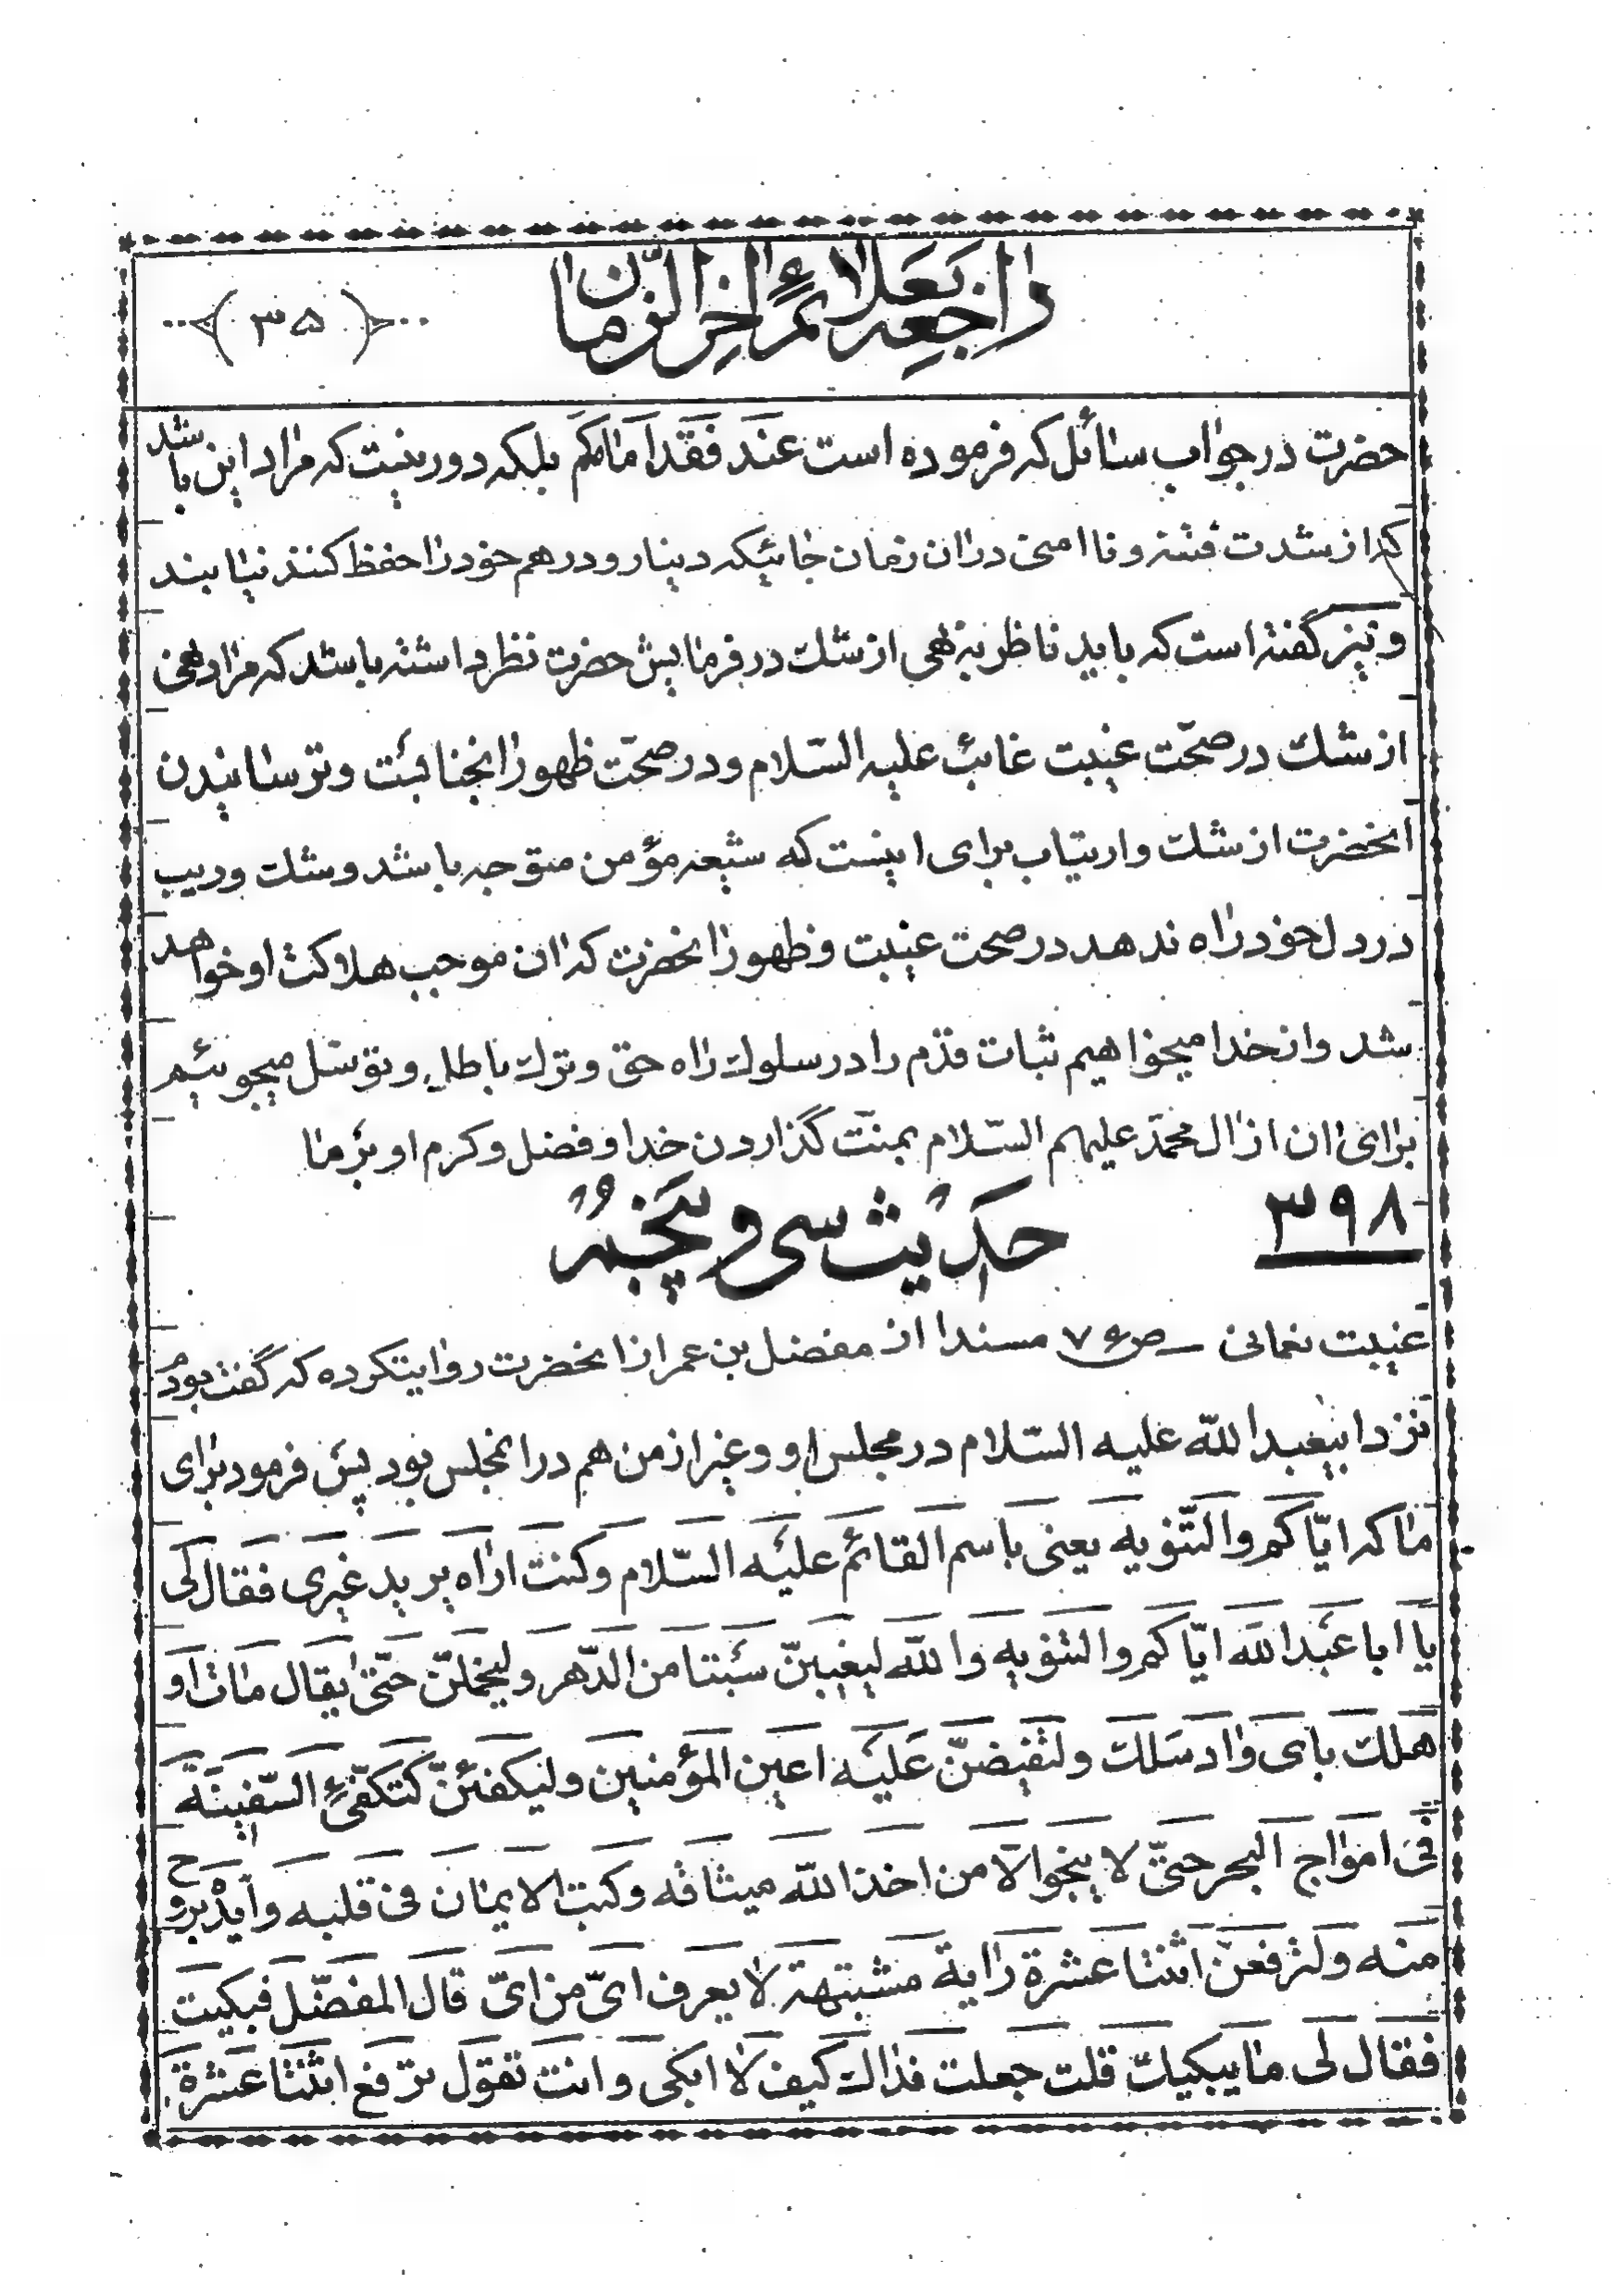 راجعه بعلائم اخر الزمان
(۳۵)
حضرت در جواب سائل که فرموده است عند فقد امامکم بلکه دور نیست که مراد این باشد
که از شدت فتنه و نا امنی در ان زمان جائیکه دینار و درهم خود را حفظ کنند نیابند
و نیز گفته است که باید ناظر به نهی از شك در فرمایش حضرت نظر داشته باشد که مراد نهی
از شك در صحّت غیبت غائب علیه السّلام و در صحّت ظهور انجنابست و ترسانیدن
انحضرت از شك و ارتیاب برای اینست که شیعه مؤمن متوجه باشد و شك و ریب
در دل خود راه ندهد در صحت غیبت و ظهور انحضرت که ان موجب هلاکت او خواهد
شد و از خدا میخواهیم ثبات قدم را در سلوك راه حق و ترك باطل و توسّل میجوئیم
برای ان از ال محمّد علیهم السّلام بمنّت گذاردن خدا و فضل و کرم او بر ما
۳۹۸
حدیث سی و پنجم
غیبت نعمانی ص ۷۶ مسندا از مفضل بن عمر از انحضرت روایتکرده که گفت بودم
نزد ابیعبد الله علیه السّلام در مجلس او و غیر از من هم در انمجلس بود پس فرمود برای
ما که ایّاکم و التّنویه یعنی باسم القائم علیه السّلام و کنت اراه یرید غیری فقال لی
یا ابا عبد الله ایّاکم و التنویه و الله لیغیبنّ سبتا من الدّهر و لیخملنّ حتّی یقال مات او
هلك بای واد سلك و لتفیضنّ علیه اعین المؤمنین و لیکفئنّ کتکفّیء السّفینة
فی امواج البحر حتّی لا ینجو الّا من اخذ الله میثاقه و کتب الایمان فی قلبه و ایّده بروح
منه و لترفعن اثنتا عشرة رایة مشتبهة لا یعرف ایّ من ایّ قال المفضّل فبکیت
فقال لی ما یبکیك قلت جعلت فداك کیف لا ابکی و انت تقول ترفع اثنتا عشرة